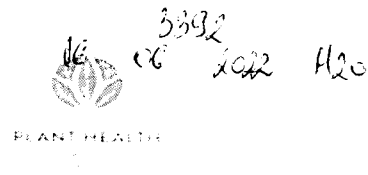 3392
06 2022 H20
PLANT HEALTH